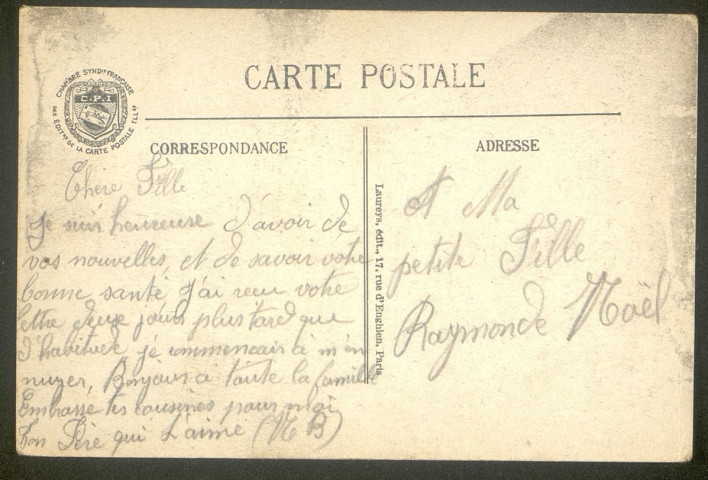 CHAMBRE SYND. FRANÇAISE
DES ÉDIT. DE LA CARTE POSTALE ILL.
C.P.I
CARTE POSTALE
CORRESPONDANCE
Chère Fille
Je suis heureuse d'avoir de
vos nouvelles, et de savoir votre
bonne santé, j'ai recu votre
lettre deux jours plus tard que
d'habitude, je commencais à m'en
nuyer, Bonjour a toute la famille
Embrasse tes cousines pour moi
Ton Père qui t'aime (N B)
Laureys, édit., 17, rue d'Enghien, Paris
ADRESSE
A Ma
petite Fille
Raymonde Noël